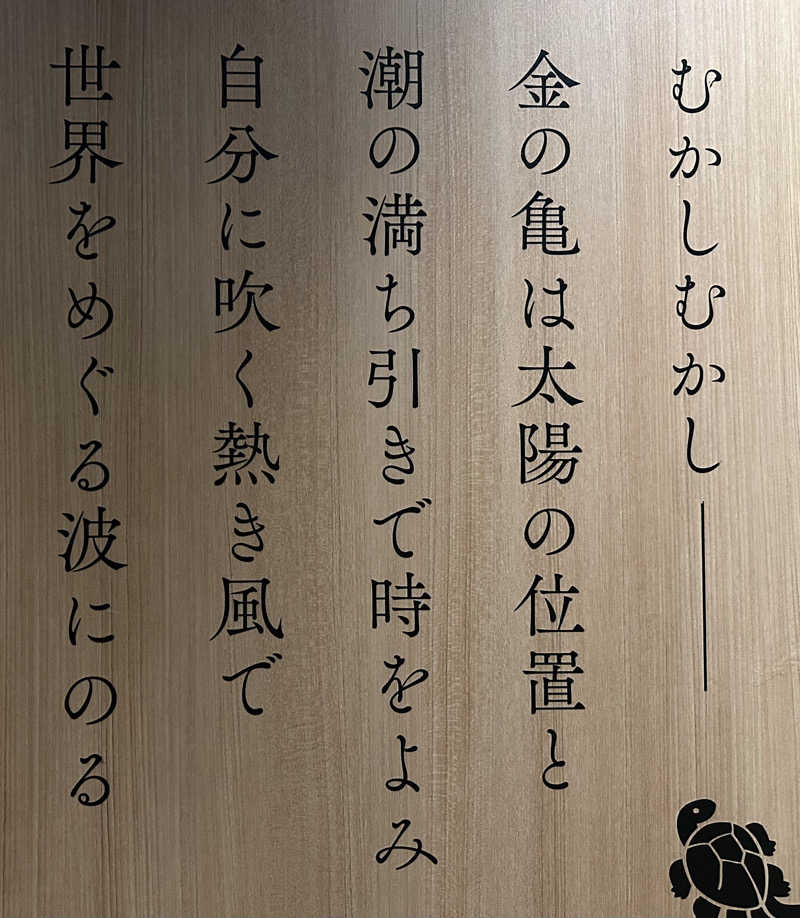 むかしむかし――
金の亀は太陽の位置と
潮の満ち引きで時をよみ
自分に吹く熱き風で
世界をめぐる波にのる